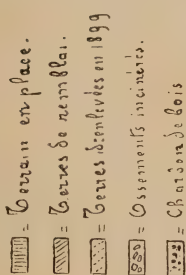 = Terrain en place.
= Terres de remblai.
= Terres déjà enlevées en 1899
= Ossements incinérés.
= Charbon de bois